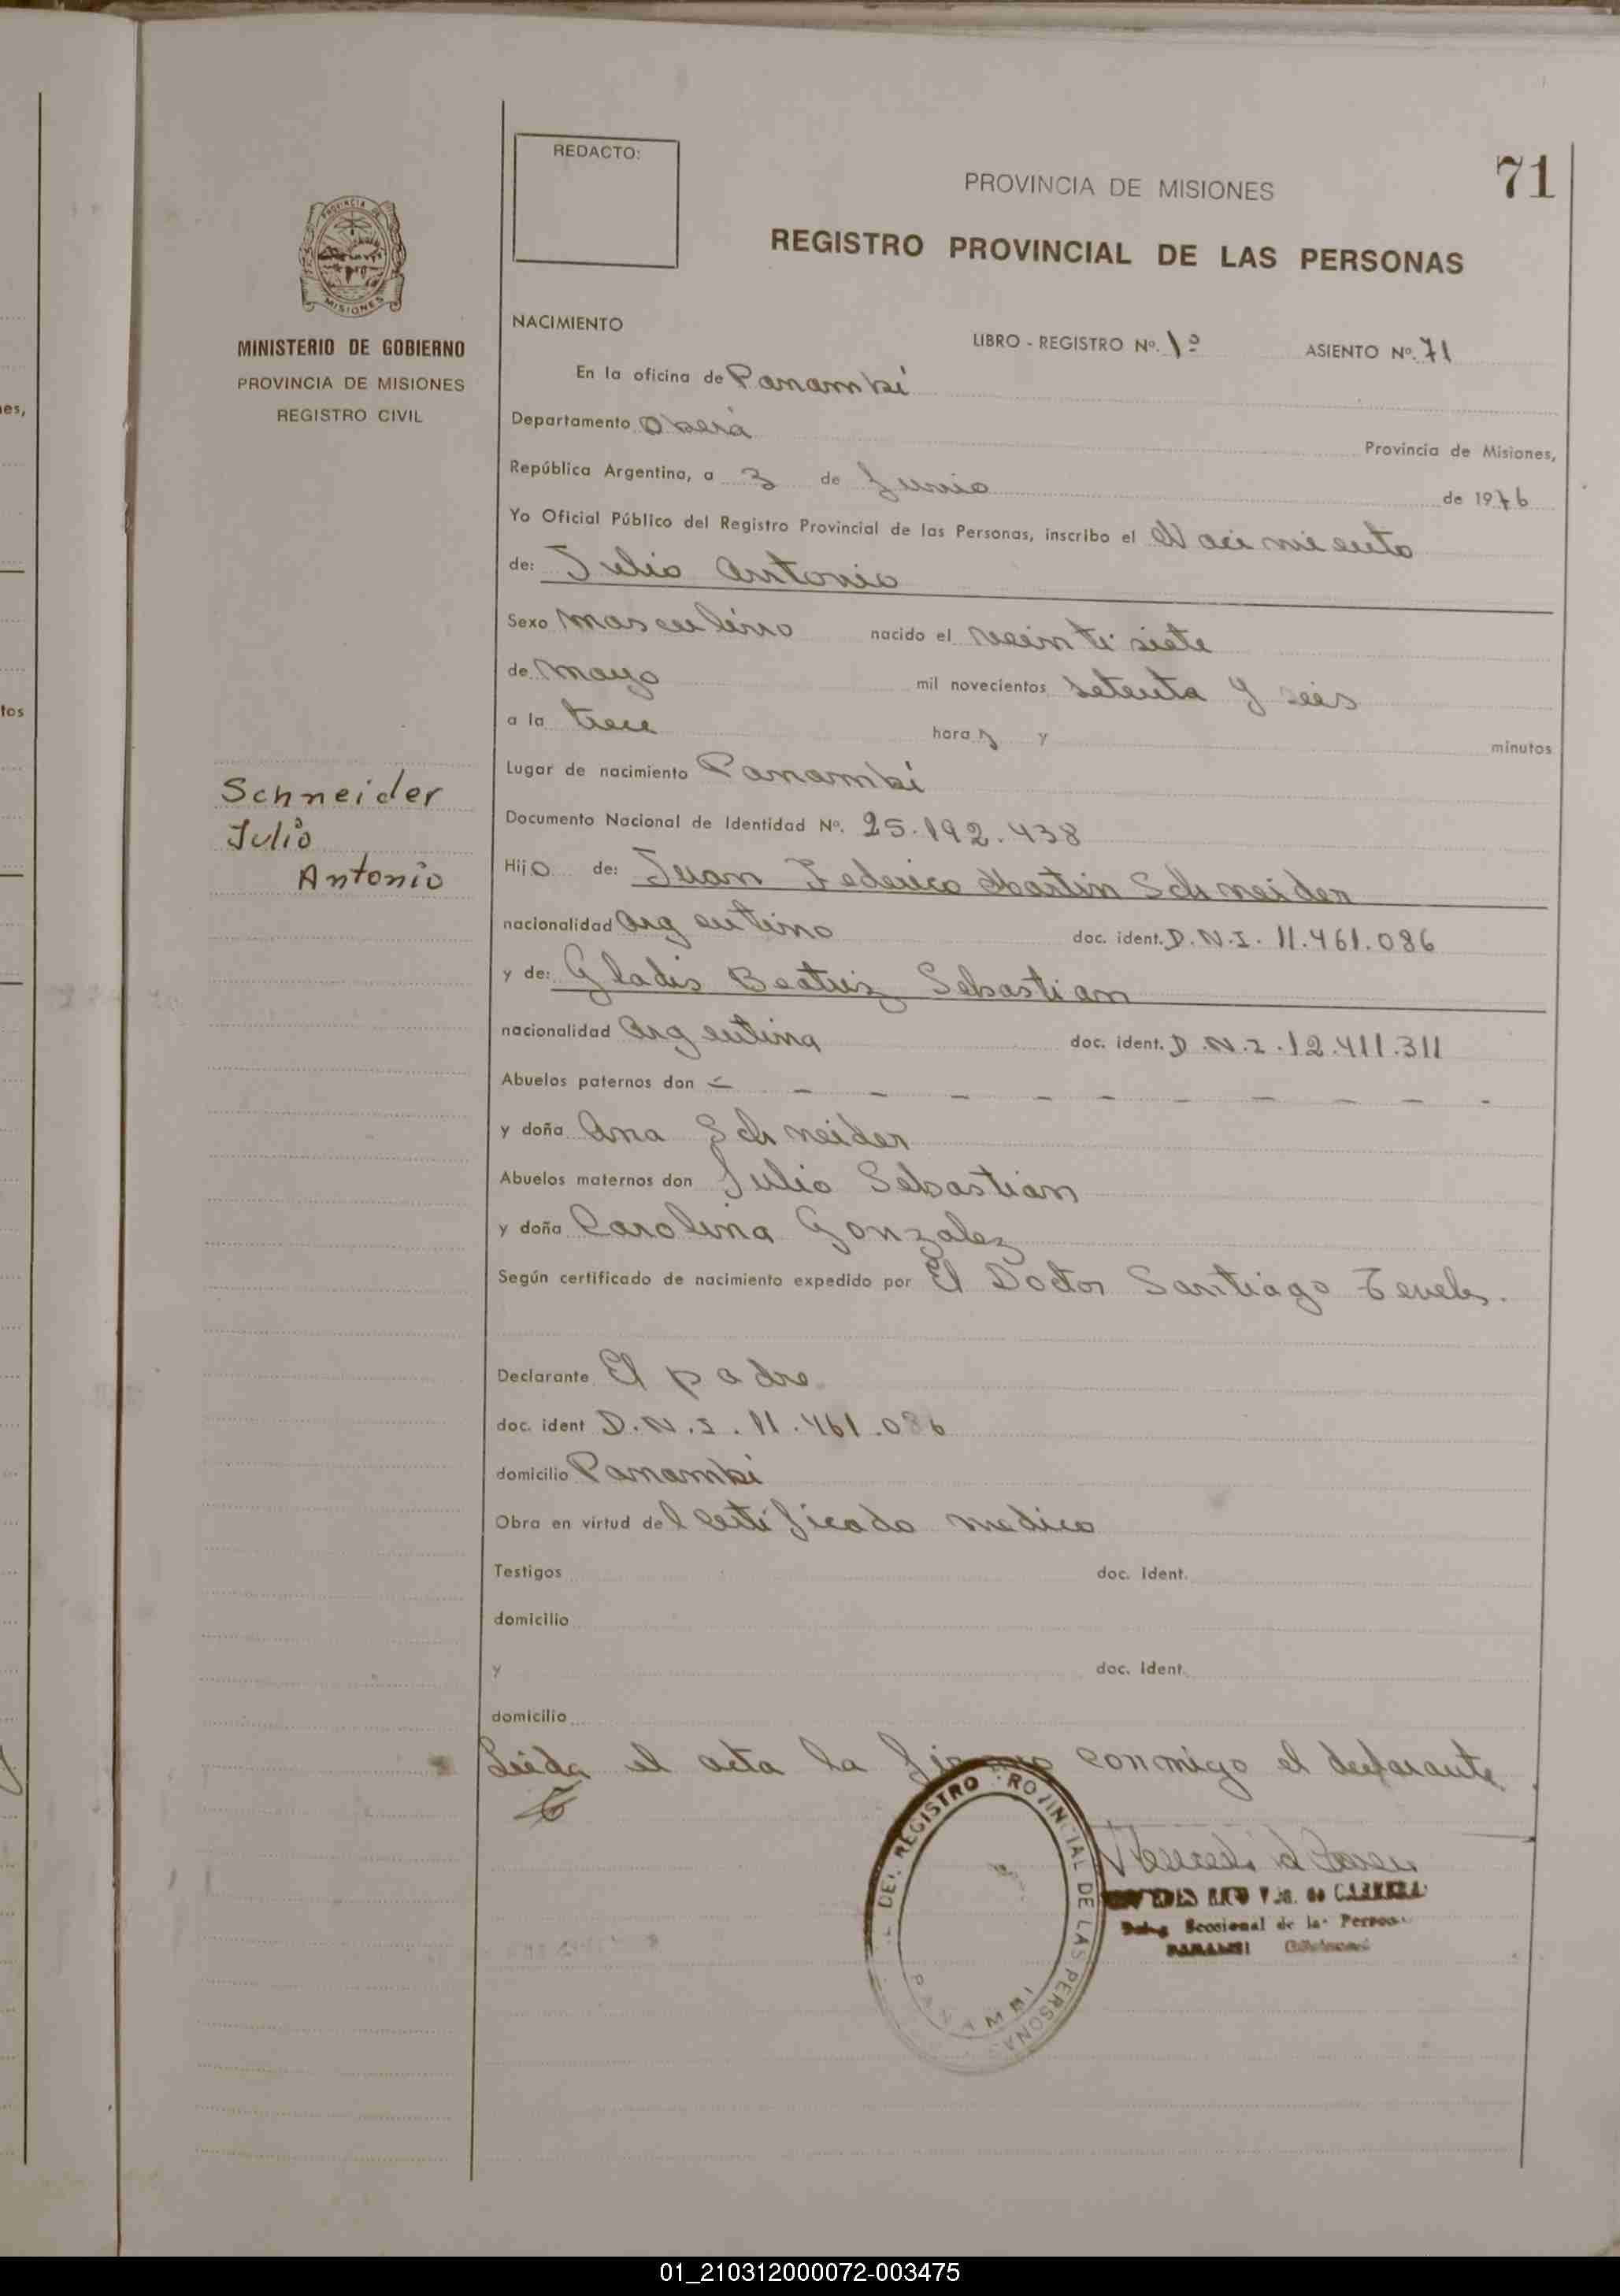 es,
tos
REDACTO:
PROVINCIA DE MISIONES
71
REGISTRO PROVINCIAL DE LAS PERSONAS
PROVINCIA DE
MISIONES
MINISTERIO DE GOBIERNO
PROVINCIA DE MISIONES
REGISTRO CIVIL
Schneider
Julio
Antonio
NACIMIENTO
LIBRO - REGISTRO Nº. 1º ASIENTO Nº. 71
En la oficina de Panambí
Departamento Oberá Provincia de Misiones,
República Argentina, a 3 de Junio de 1976
Yo Oficial Público del Registro Provincial de las Personas, inscribo el Nacimiento
de: Julio Antonio
Sexo Masculino nacido el veintisiete
de Mayo mil novecientos setenta y seis
a la trece horas y minutos
Lugar de nacimiento Panambí
Documento Nacional de Identidad Nº. 25.192.438
Hijo de: Juan Federico Martin Schneider
nacionalidad argentino doc. ident. D.N.I. 11.461.086
y de: Gladis Beatriz Sebastian
nacionalidad argentina doc. ident. D.N.I. 12.411.311
Abuelos paternos don - - - - - - - - - - -
y doña Ana Schneider
Abuelos maternos don Julio Sebastian
y doña Carolina Gonzalez
Según certificado de nacimiento expedido por El Doctor Santiago
Declarante El padre
doc. ident D.N.I. 11.461.086
domicilio Panambí
Obra en virtud del certificado medico
Testigos doc. ident.
domicilio
y doc. ident.
domicilio
Leída el acta la conmigo el declarante.
DEL REGISTRO PROVINCIAL DE LAS PERSONAS
PANAMBI
de CABRERA
Seccional de las Personas
PANAMBI
01_210312000072-003475